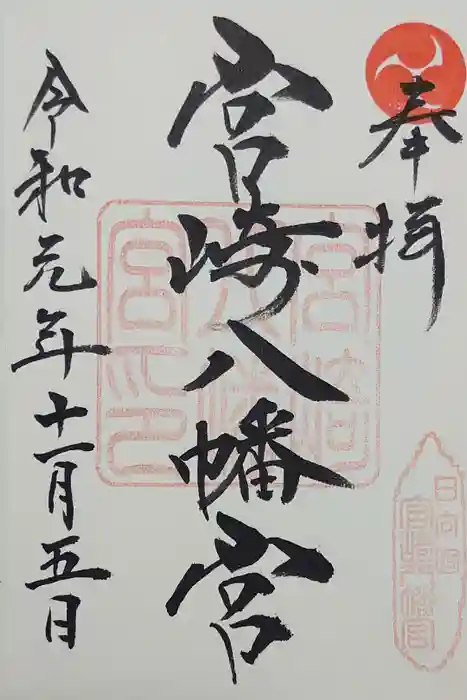 奉拝
宮崎八幡宮
令和元年十一月五日
宮崎八幡宮印
日向国
宮崎八幡宮